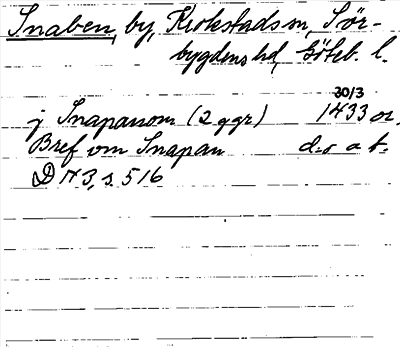 Snaben, by, Krokstads sn, Sör-
bygdens hd, Göteb. l.
30/3
j Snapanom (2 ggr) 1433 or.
Bref om Snapan d:o a t.
D N 3, s. 516